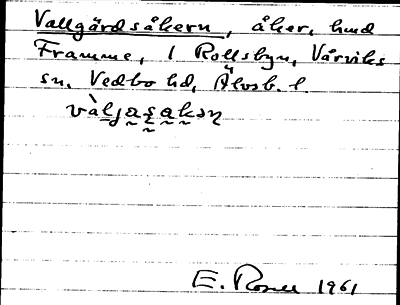 Vallgårdsåkern, åker, hmd
Framme, 1 Rollsbyn, Vårviks
sn. Vedbo hd, Älvsb. l.
vàljaṣakən
E. Rosell 1961